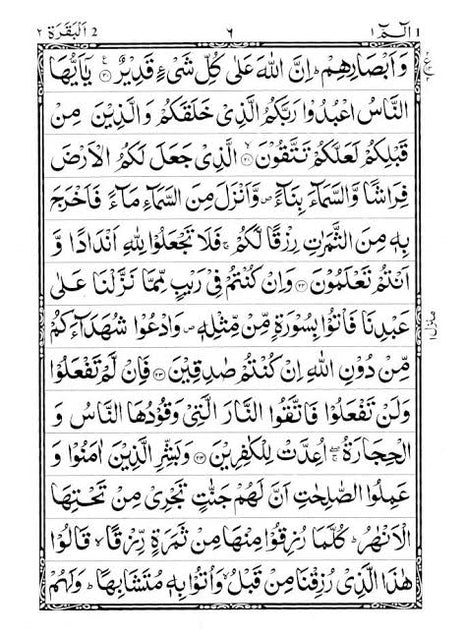 الٓمّٓ ١ ٦ اَلْبَقَرَة ٢
وَاَبْصَارِهِمْ ؕ اِنَّ اللّٰهَ عَلٰى كُلِّ شَىْءٍ قَدِيْرٌ ﴿۲۰﴾ يٰۤاَيُّهَا
النَّاسُ اعْبُدُوْا رَبَّكُمُ الَّذِىْ خَلَقَكُمْ وَالَّذِيْنَ مِنْ
قَبْلِكُمْ لَعَلَّكُمْ تَتَّقُوْنَ ﴿۲۱﴾ الَّذِىْ جَعَلَ لَكُمُ الْاَرْضَ
فِرَاشًا وَّالسَّمَآءَ بِنَآءً ص وَّاَنْزَلَ مِنَ السَّمَآءِ مَآءً فَاَخْرَجَ
بِهٖ مِنَ الثَّمَرٰتِ رِزْقًا لَّكُمْ ۚ فَلَا تَجْعَلُوْا لِلّٰهِ اَنْدَادًا وَّ
اَنْتُمْ تَعْلَمُوْنَ ﴿۲۲﴾ وَاِنْ كُنْتُمْ فِىْ رَيْبٍ مِّمَّا نَزَّلْنَا عَلٰى
عَبْدِنَا فَاْتُوْا بِسُوْرَةٍ مِّنْ مِّثْلِهٖ ص وَادْعُوْا شُهَدَآءَكُمْ
مِّنْ دُوْنِ اللّٰهِ اِنْ كُنْتُمْ صٰدِقِيْنَ ﴿۲۳﴾ فَاِنْ لَّمْ تَفْعَلُوْا
وَلَنْ تَفْعَلُوْا فَاتَّقُوا النَّارَ الَّتِىْ وَقُوْدُهَا النَّاسُ وَ
الْحِجَارَةُ ۖۚ اُعِدَّتْ لِلْكٰفِرِيْنَ ﴿۲۴﴾ وَبَشِّرِ الَّذِيْنَ اٰمَنُوْا وَ
عَمِلُوا الصّٰلِحٰتِ اَنَّ لَهُمْ جَنّٰتٍ تَجْرِىْ مِنْ تَحْتِهَا
الْاَنْهٰرُ ؕ كُلَّمَا رُزِقُوْا مِنْهَا مِنْ ثَمَرَةٍ رِّزْقًا ۙ قَالُوْا
هٰذَا الَّذِىْ رُزِقْنَا مِنْ قَبْلُ ۙ وَاُتُوْا بِهٖ مُتَشَابِهًا ؕ وَلَهُمْ
منزل ١